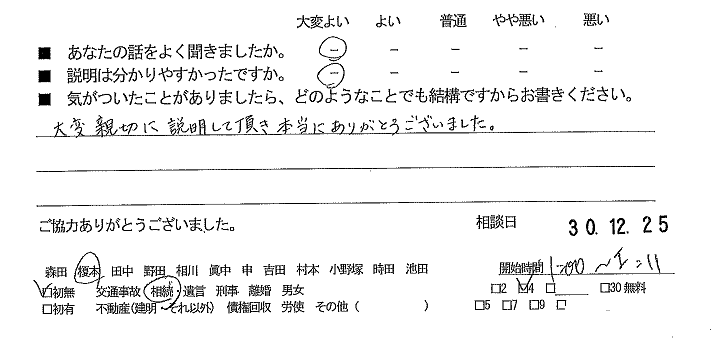 大変よい よい 普通 やや悪い 悪い
■ あなたの話をよく聞きましたか。 － － － － －
■ 説明は分かりやすかったですか。 － － － － －
■ 気がついたことがありましたら、どのようなことでも結構ですからお書きください。
大変親切に説明して頂き本当にありがとうございました。
ご協力ありがとうございました。 相談日 30.12.25
森田 榎本 田中 野田 相川 眞中 申 吉田 村本 小野塚 時田 池田 開始時間
□初無 交通事故 相続・遺言 刑事 離婚 男女 □2 □4 □ □30無料
□初有 不動産(建明・それ以外) 債権回収 労使 その他( ) □5 □7 □9 □